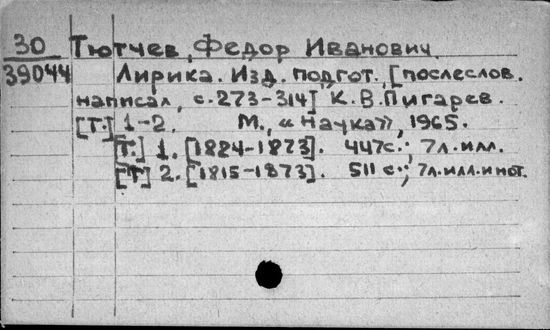 30 Тютчев, Федор Иванович.
39044 Лирика. Изд. подгот., [послеслов.
написал, с. 273-314] К. В. Пигарев.
[Т.] 1-2. М., «Наука», 1965.
[Т.] 1. [1824-1873]. 447с.; 7л. илл.
[Т] 2. [1815-1873]. 511 с.; 7л. илл. и нот.